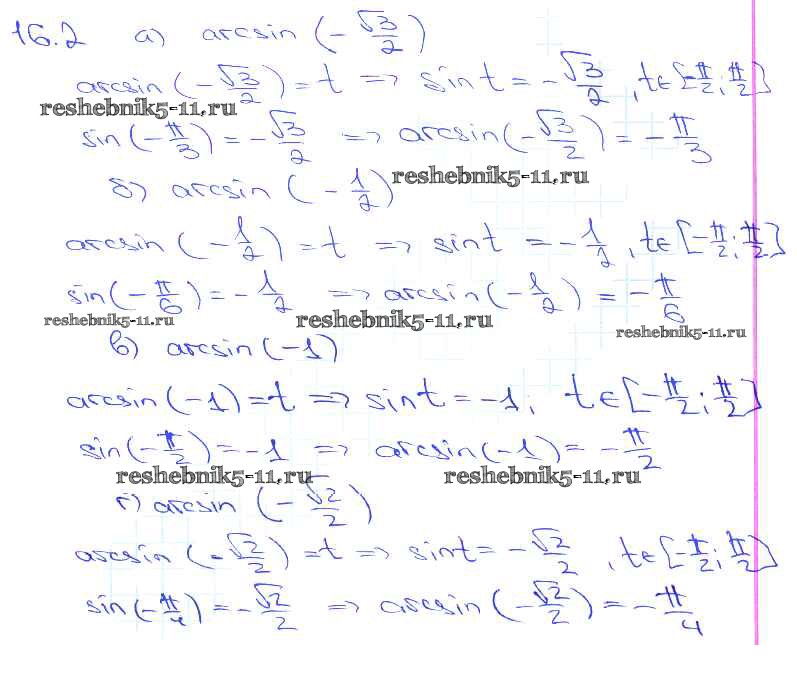 16.2 а) arcsin (-√3/2)
arcsin (-√3/2) = t => sin t = -√3/2, t∈[-π/2; π/2]
reshebnik5-11.ru
sin(-π/3) = -√3/2 => arcsin(-√3/2) = -π/3
reshebnik5-11.ru
б) arcsin (-1/2)
arcsin (-1/2) = t => sin t = -1/2, t∈[-π/2; π/2]
sin(-π/6) = -1/2 => arcsin(-1/2) = -π/6
reshebnik5-11.ru reshebnik5-11.ru reshebnik5-11.ru
в) arcsin(-1)
arcsin(-1) = t => sin t = -1; t∈[-π/2; π/2]
sin(-π/2) = -1 => arcsin(-1) = -π/2
reshebnik5-11.ru reshebnik5-11.ru
г) arcsin (-√2/2)
arcsin (-√2/2) = t => sin t = -√2/2, t∈[-π/2; π/2]
sin(-π/4) = -√2/2 => arcsin (-√2/2) = -π/4